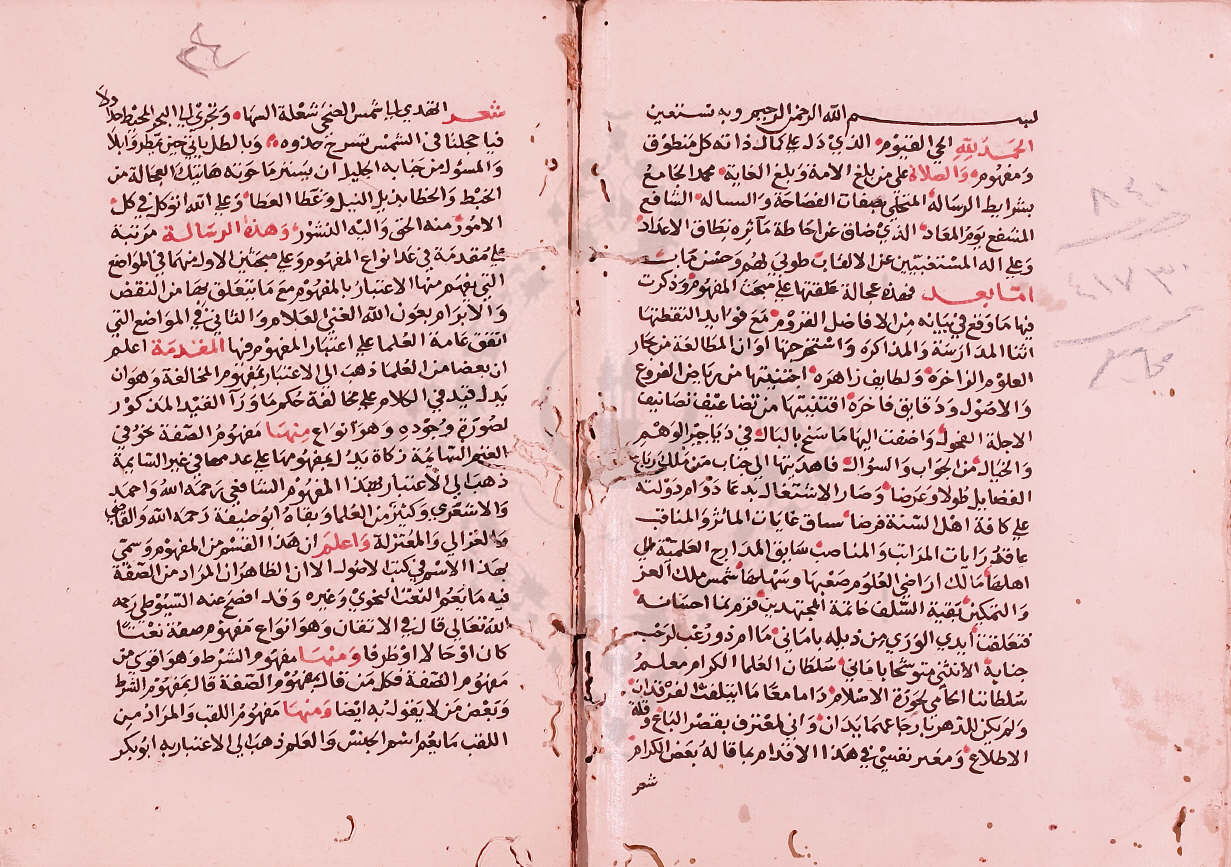 بسم الله الرحمن الرحيم وبه نستعين
الحمد لله الحي القيوم الذي دل على كمال ذاته كل منطوق
ومفهوم والصلاة على من بلغ الامة وبلغ الغاية محمد الجامع
بشرايط الرسالة المتحلي بصفات الفصاحة والبسالة الشافع
المشفع يوم المعاد الذي ضاق عن احاطة مآثره نطاق الاعداد
وعلى اله المستغنيين عن الالقاب طوبى لهم وحسن مآب
اما بعد فهذه عجالة علقتها على مبحث المفهوم وذكرت
فيها ما وقع في بيانه من الافاضل القروم مع فوايد التقطتها
اثنا المدارسة والمذاكره واستخرجتها اوان المطالعة من بحار
العلوم الزاخرة ولطايف زاهره اجتنيتها من رياض الفروع
والاصول ودقايق فاخرة اقتنيتها من تضاعيف تصانيف
الاجلة الفحول واضفت اليها ما سنح بالبال في دياجر الوهم
والخيال من الجواب والسؤال فاهديتها الى جناب من ملك رباع
الفضايل طولا وعرضا وصار الاشتغال بدعا دوام دولته
على كافة اهل السنة فرضا سباق غايات الماثر والمناقب
عاقد رايات المراتب والمناصب سابق المدارج العلمية على
اهلها مالك اراضي العلوم صعبها وسهلها شمس ملك العز
والتمكين بقية السلف خاتمة المجتهدين قرم نما احسانه
فتعلقت ايدي الورى من ذيله باماني ما امر ذو رغب لرحب
جنابه الا نثنى متوشحا باماني سلطان العلما الكرام معلم
سلطاننا الحامي لحوزة الاسلام داما معا ما ايتلفت الفرقدان
ولم يكن للدهر نارجا عما يدان واني لمعترف بقصر الباع وقلة
الاطلاع ومعبر نفسي في هذا الاقدام بما قاله بعض الكرام
شعر
شعر اتهدي الى شمس الضحى شعلة السها وتجري الى البحر المحيط جداولا
فيا عجلنا في الشمس تسرح حذوه وبالطل ياتي حين تمطر وابلا
والمسؤل من جنابه الجليل ان يستر ما حوته هاتيك العجالة من
الخبط والخطا بذيل النيل وغطا العطا وعلى الله اتوكل في كل
الامور منه الحق واليه النشور وهذه الرسالة مرتبة
على مقدمة في عد انواع المفهوم وعلى مبحثين الاول منهما في المواضع
التي يفهم منها الاعتبار بالمفهوم مع ما يتعلق بها من النقض
والابرام بعون الله الغني العلام والثاني في المواضع التي
اتفق عامة العلما على اعتبار المفهوم فيها المقدمة اعلم
ان بعضا من العلما ذهب الى الاعتبار بمفهوم المخالفة وهو ان
يدل قيد في الكلام على مخالفة حكم ما ورآ القيد المذكور
لصورة وجوده وهو انواع منها مفهوم الصفة نحو في
الغنم السائمة زكاة يدل بمفهومها على عدمها في غير السايمة
ذهب الى الاعتبار بهذا المفهوم الشافعي رحمه الله واحمد
والاشعري وكثير من العلما ونفاه ابو حنيفة رحمه الله والقاضي
والغزالي والمعتزلة واعلم ان هذا القسم من المفهوم وسمي
بهذا الاسم في كتب الاصول الا ان الظاهر ان المراد من الصفة
فيه ما يعم النعت النحوي وغيره وقد افصح عنه السيوطي رحمه
الله تعالى قال في الاتقان وهو انواع مفهوم صفة نعتا
كان او حالا او ظرفا ومنها مفهوم الشرط وهو اقوى من
مفهوم الصفة فكل من قال بمفهوم الصفة قال بمفهوم الشرط
وبعض من لا يقول به ايضا ومنها مفهوم اللقب والمراد من
اللقب ما يعم اسم الجنس والعلم ذهب الى الاعتبار به ابو بكر